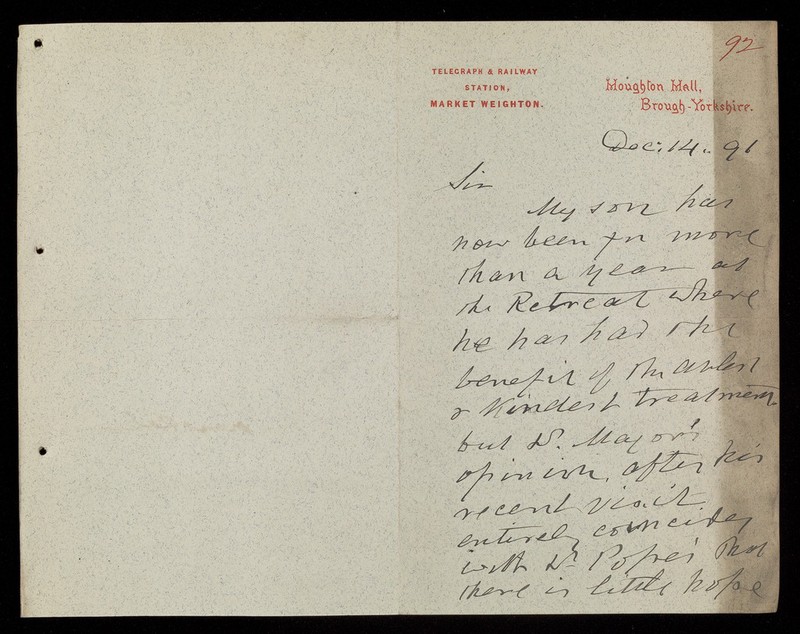 92
TELEGRAPH & RAILWAY
STATION,
MARKET WEIGHTON.
Houghton Hall,
Brough-Yorkshire.
Dec: 14. 91
Sir
My son has
now been for more
than a year at
the Retreat where
he has had the
benefit of the ablest
& kindest treatment
but Dr. Major's
opinion, after his
recent visit
entirely coincides
with Dr Pope's that
there is little hope